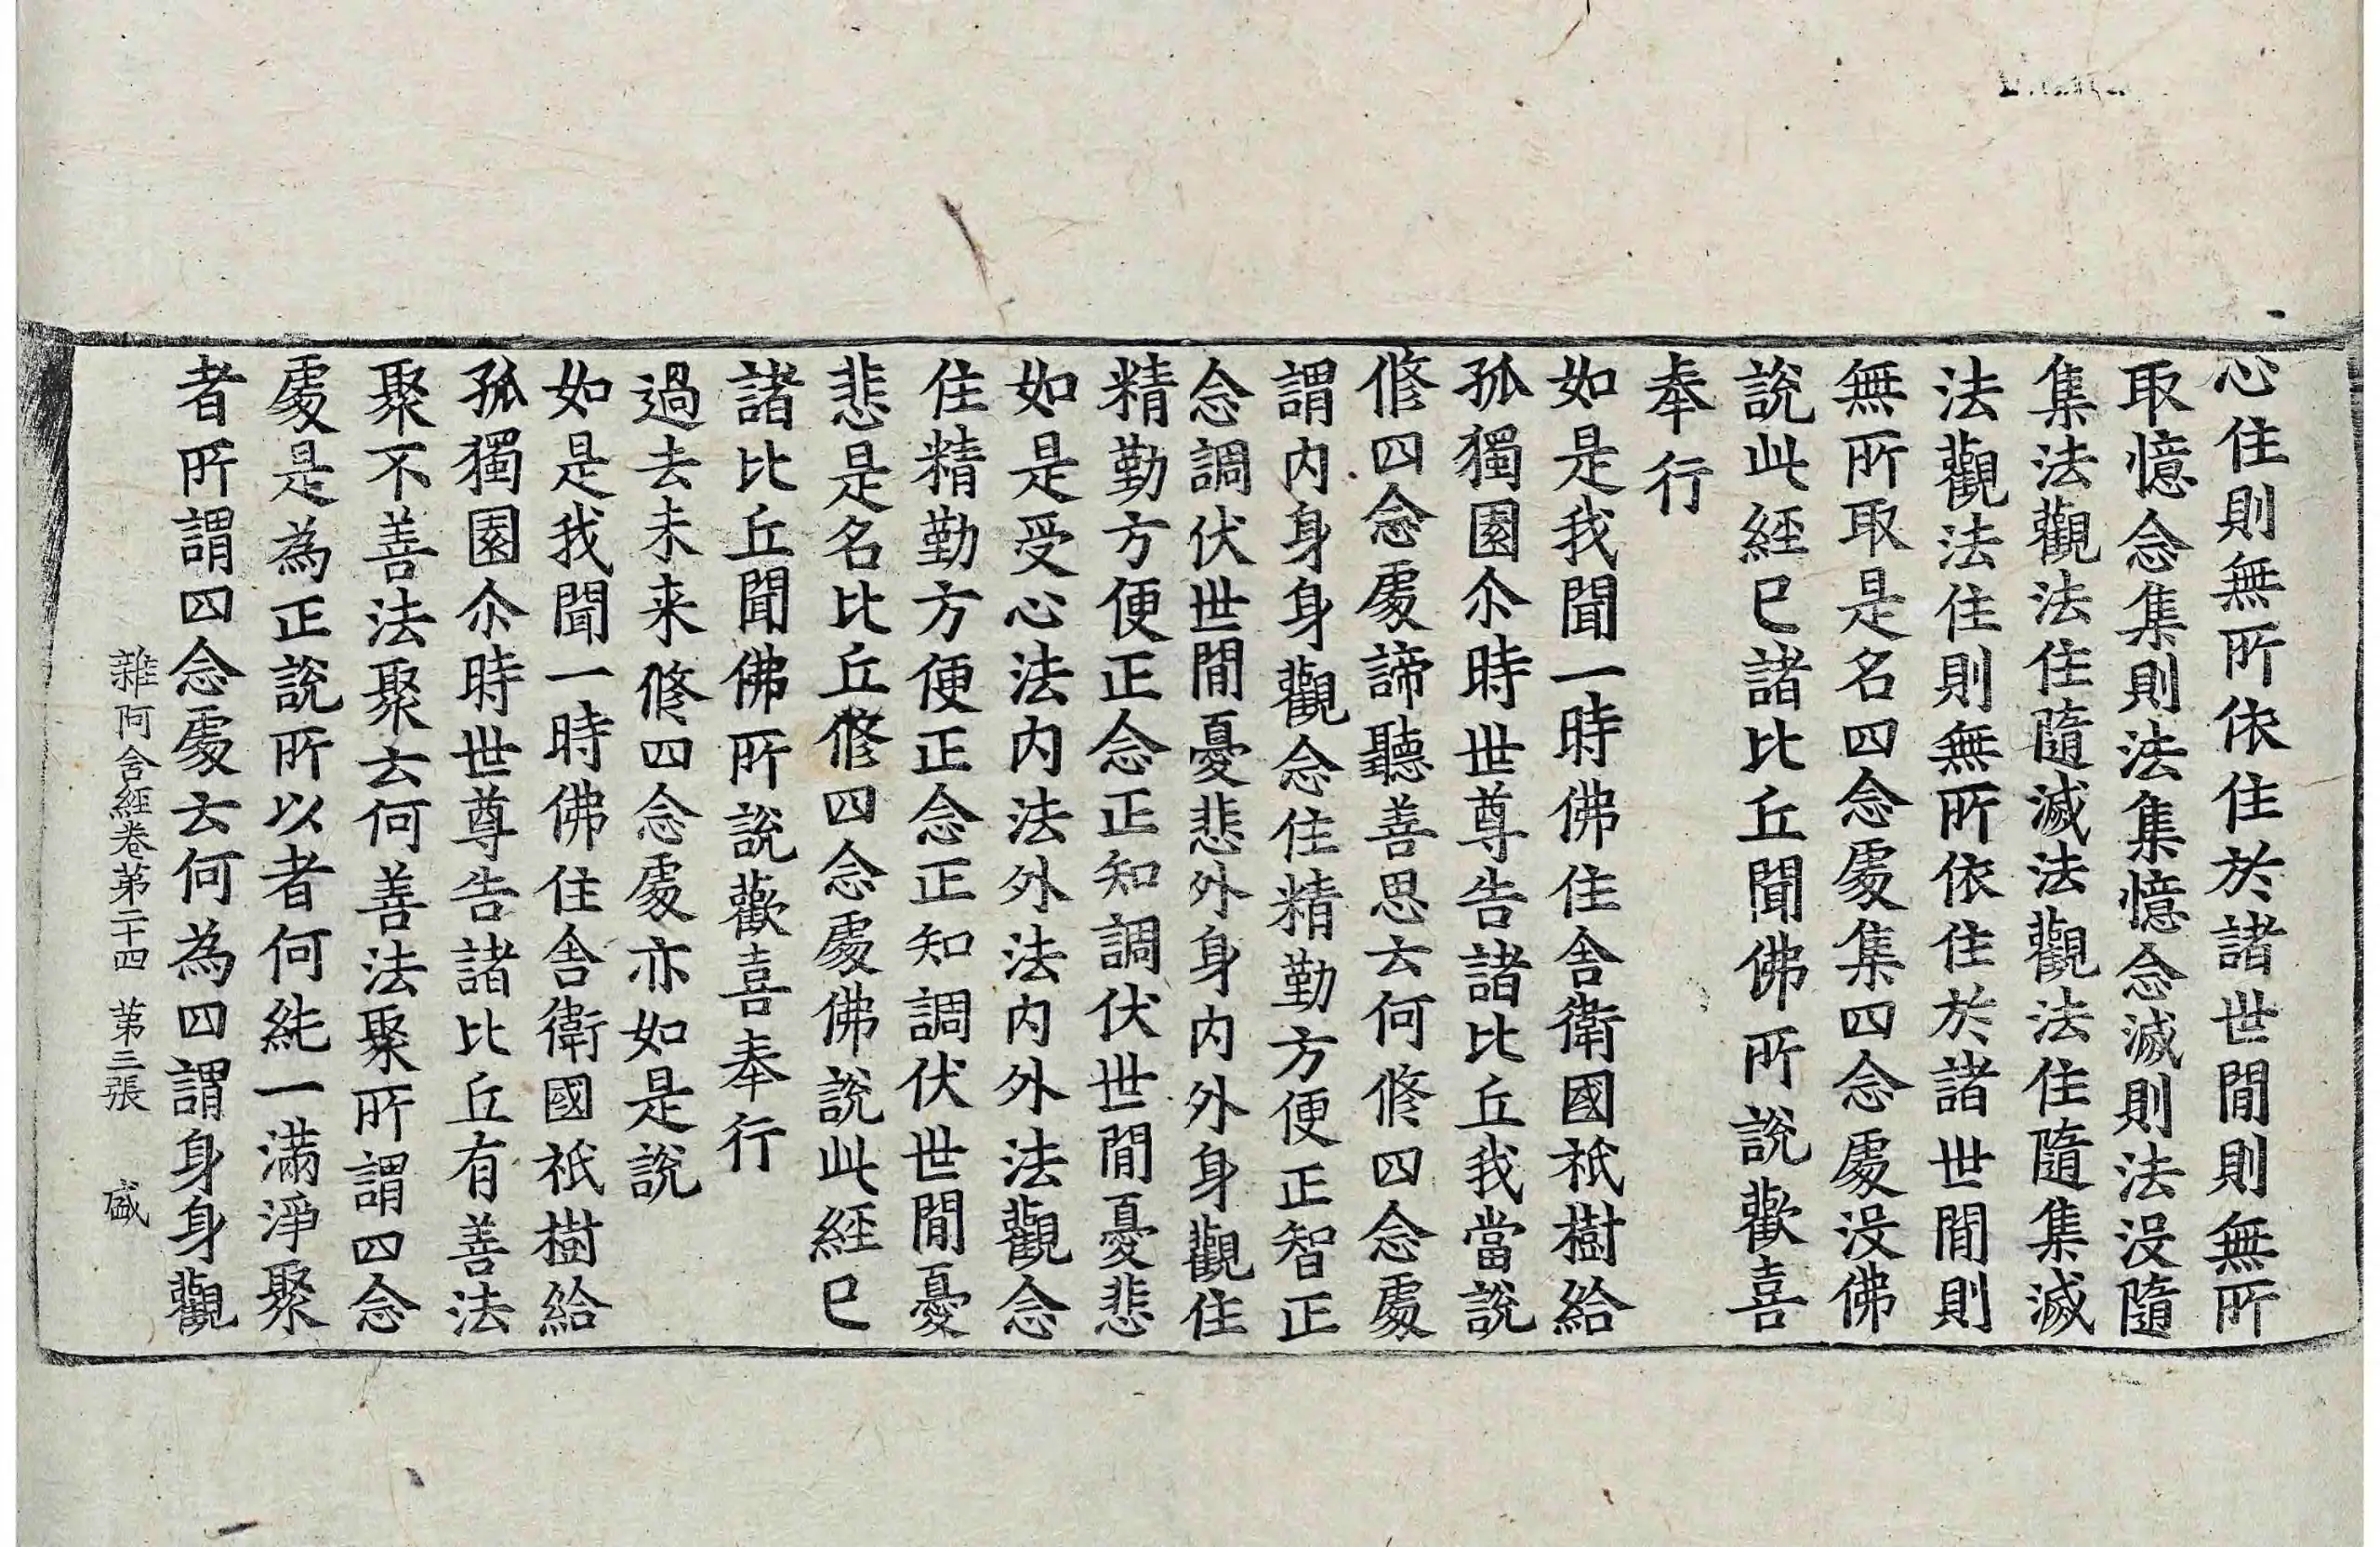 心住則無所依住於諸世間則無所
取憶念集則法集憶念滅則法沒隨
集法觀法住隨滅法觀法住隨集滅
法觀法住則無所依住於諸世間則
無所取是名四念處集四念處沒佛
說此經已諸比丘聞佛所說歡喜
奉行
如是我聞一時佛住舍衛國祇樹給
孤獨園尒時世尊告諸比丘我當說
修四念處諦聽善思云何修四念處
謂內身身觀念住精勤方便正智正
念調伏世間憂悲外身內外身觀住
精勤方便正念正知調伏世間憂悲
如是受心法內法外法內外法觀念
住精勤方便正念正知調伏世間憂
悲是名比丘修四念處佛說此經已
諸比丘聞佛所說歡喜奉行
過去未来修四念處亦如是說
如是我聞一時佛住舍衛國祇樹給
孤獨園尒時世尊告諸比丘有善法
聚不善法聚云何善法聚所謂四念
處是為正說所以者何純一滿淨聚
者所謂四念處云何為四謂身身觀
雜阿含經卷第二十四 第三張 盛